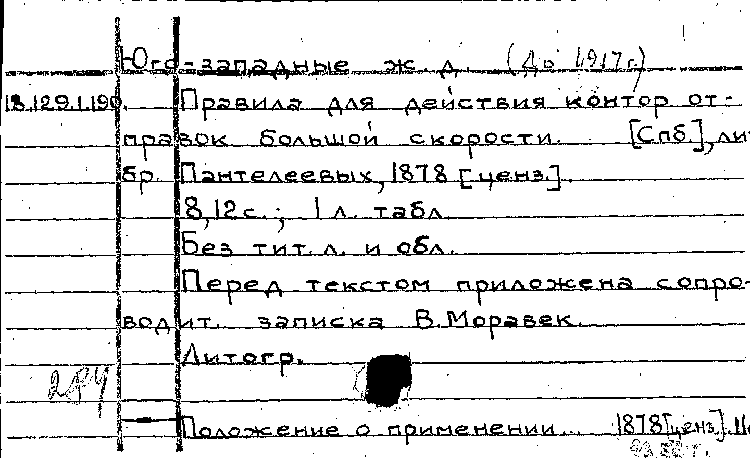 Юго-западные ж. д. (До 1917 г.)
18.129.1.190. Правила для действия контор от-
правок большой скорости. [Спб.], ли
бр. Пантелеевых, 1878 [ценз].
8,12 с.; 1 л. табл.
Без тит. л. и обл.
Перед текстом приложена сопро-
водит. записка В. Моравек.
Литогр.
284
Положение о применении... 1878 [ценз].